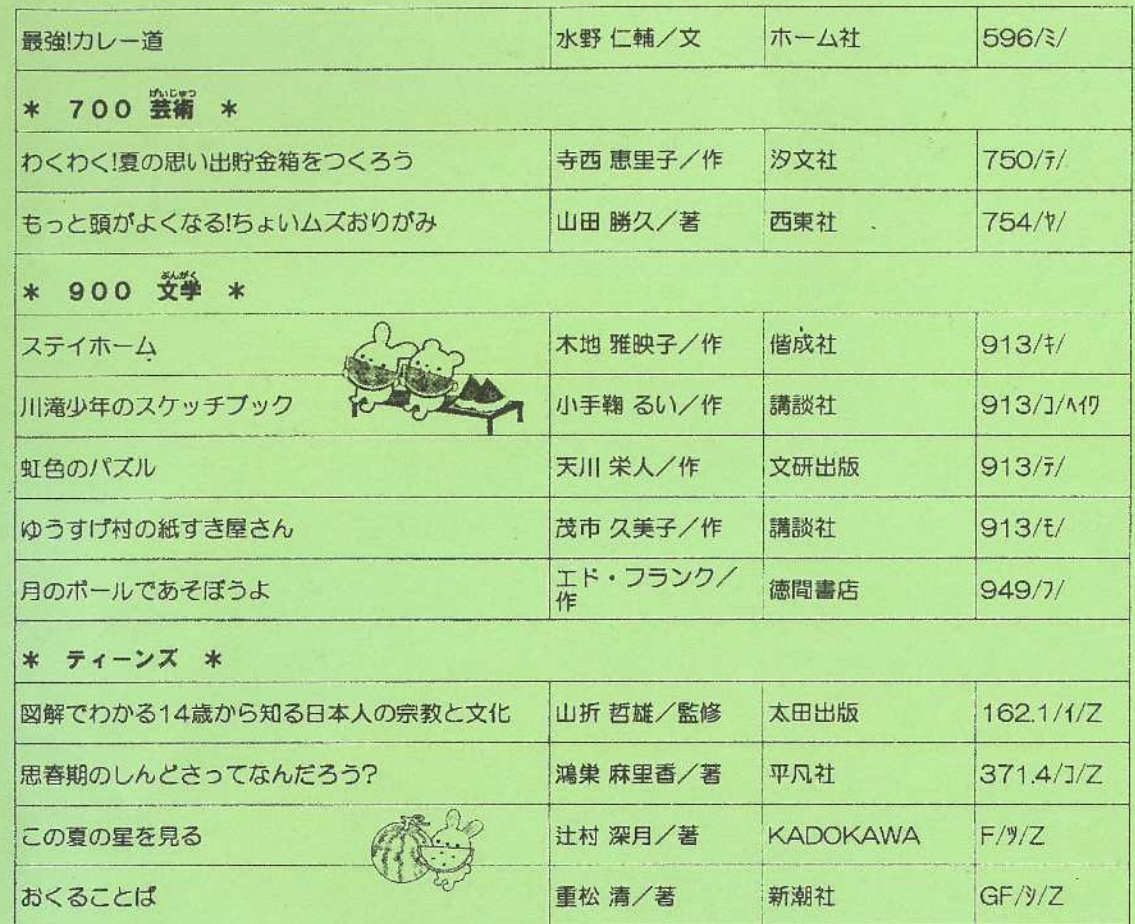 最強!カレー道 水野 仁輔／文 ホーム社 596/ミ/
げいじゅつ
* 700 芸術 *
わくわく!夏の思い出貯金箱をつくろう 寺西 恵里子／作 汐文社 750/テ/
もっと頭がよくなる!ちょいムズおりがみ 山田 勝久／著 西東社 754/ヤ/
ぶんがく
* 900 文学 *
ステイホーム 木地 雅映子／作 偕成社 913/キ/
川滝少年のスケッチブック 小手鞠 るい／作 講談社 913/コ/ヘイワ
虹色のパズル 天川 栄人／作 文研出版 913/テ/
ゆうすげ村の紙すき屋さん 茂市 久美子／作 講談社 913/モ/
月のボールであそぼうよ エド・フランク／作 徳間書店 949/フ/
* ティーンズ *
図解でわかる14歳から知る日本人の宗教と文化 山折 哲雄／監修 太田出版 162.1/イ/Z
思春期のしんどさってなんだろう? 鴻巣 麻里香／著 平凡社 371.4/コ/Z
この夏の星を見る 辻村 深月／著 KADOKAWA F/ツ/Z
おくることば 重松 清／著 新潮社 GF/シ/Z